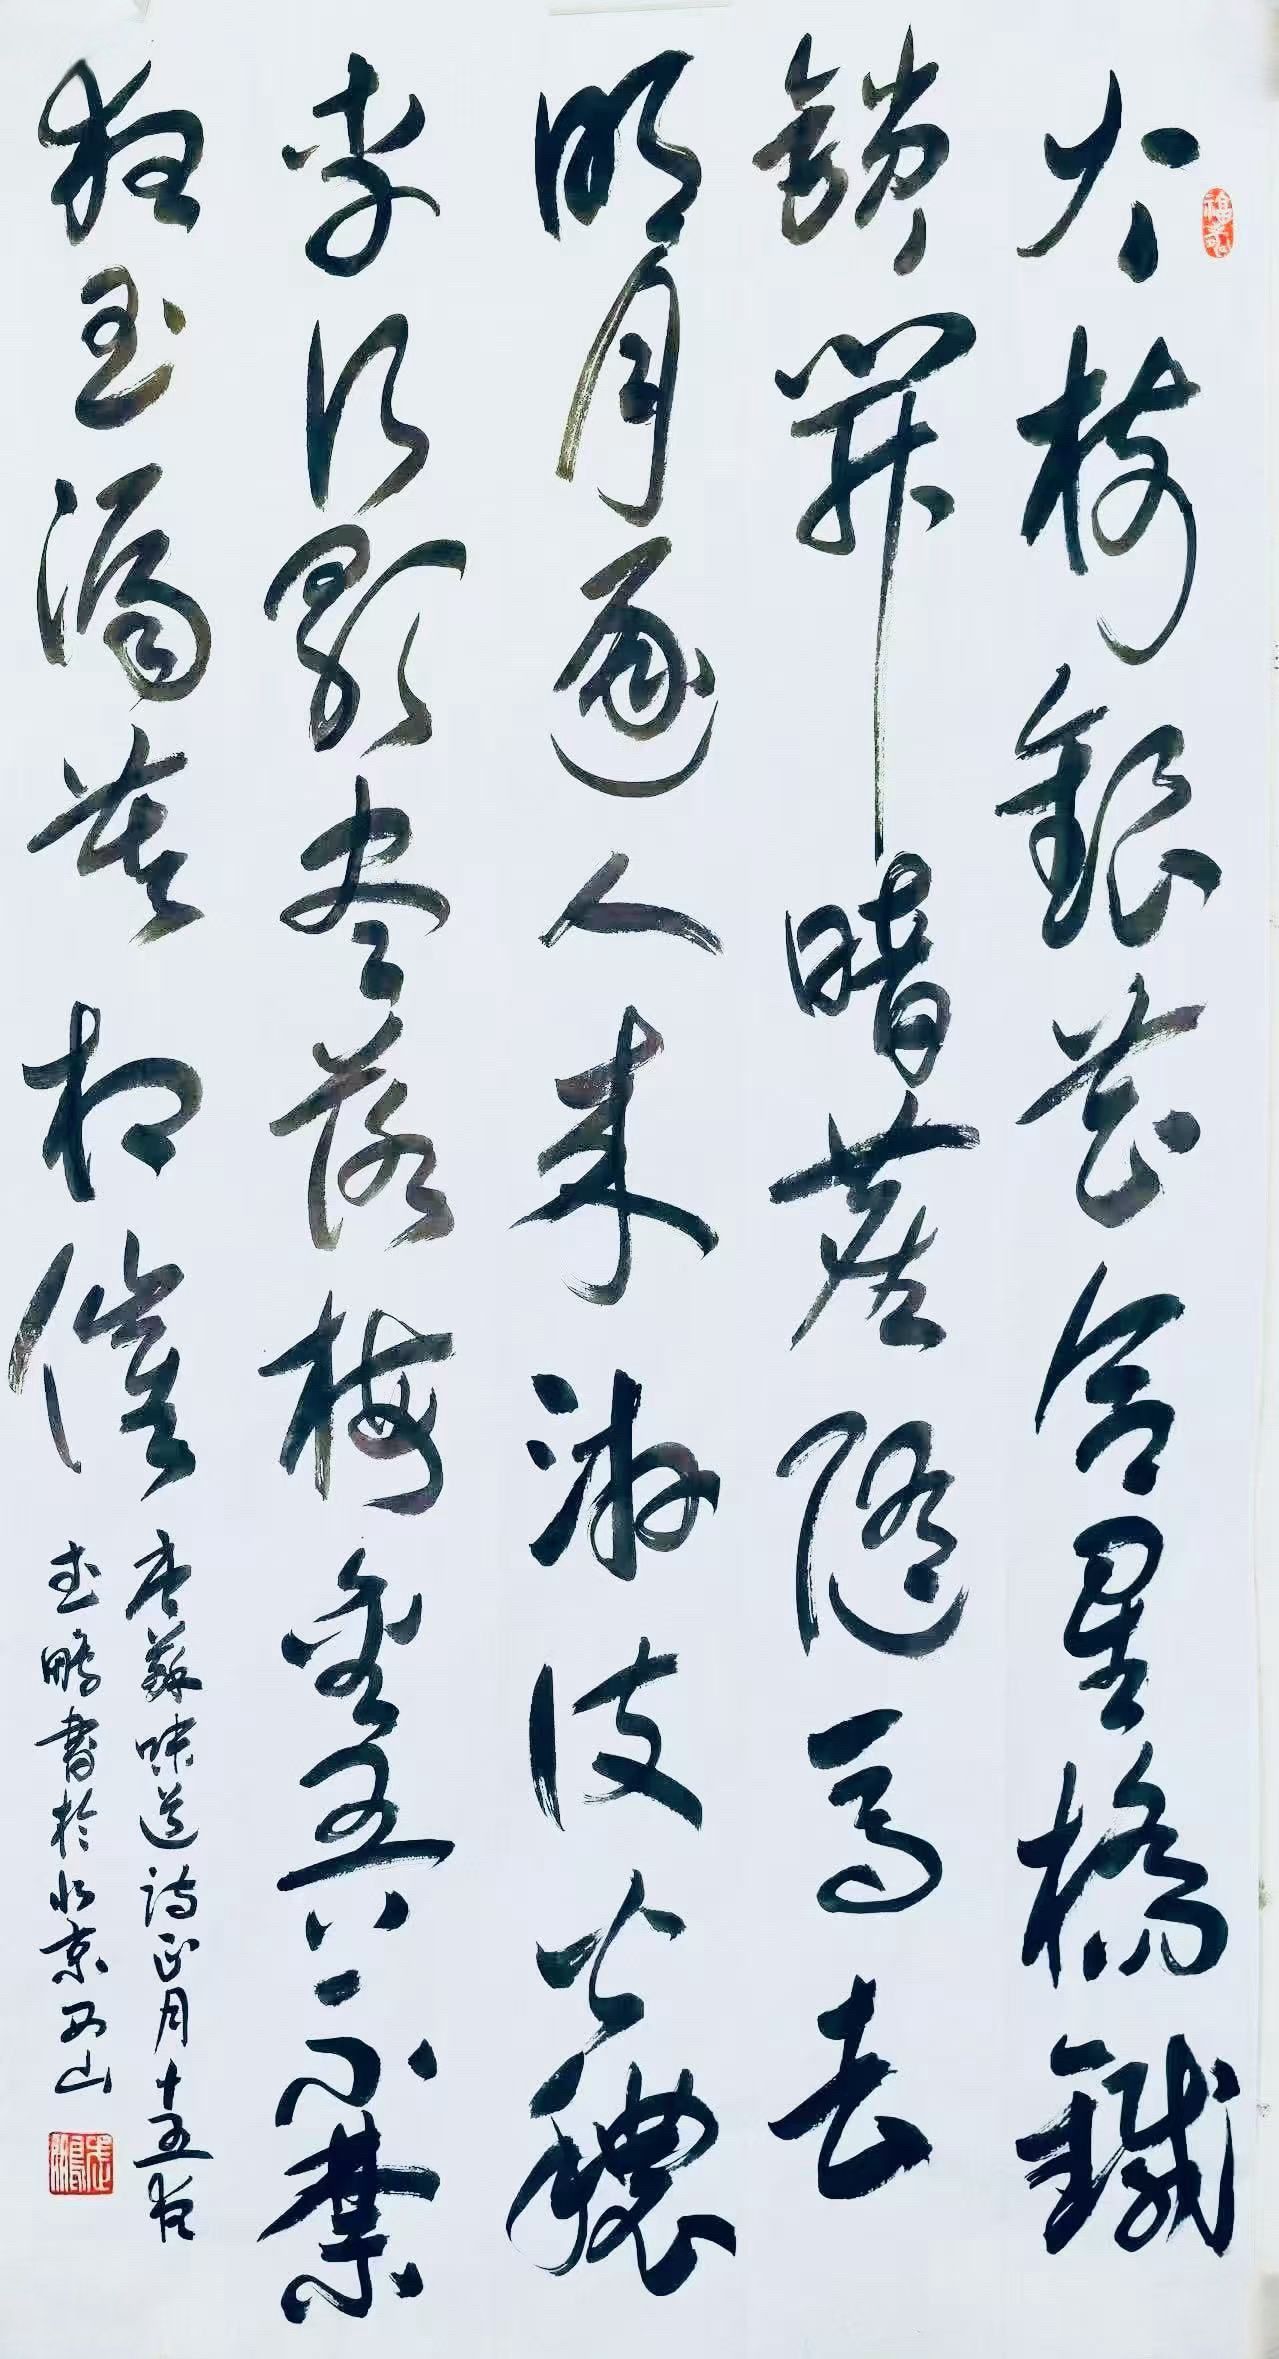 火樹銀花合星橋鐵
鎖開暗塵隨馬去
明月逐人來游伎皆穠
李行歌尽落梅金吾不禁
夜玉漏莫相催
唐蘇味道詩正月十五夜
武鵬書於北京西山
武鵬